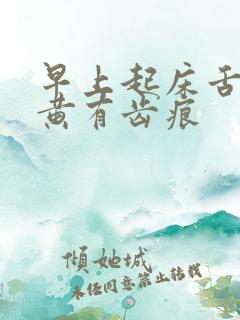 早上起床舌
黄有齿痕
倾她城
未经同意禁止转载